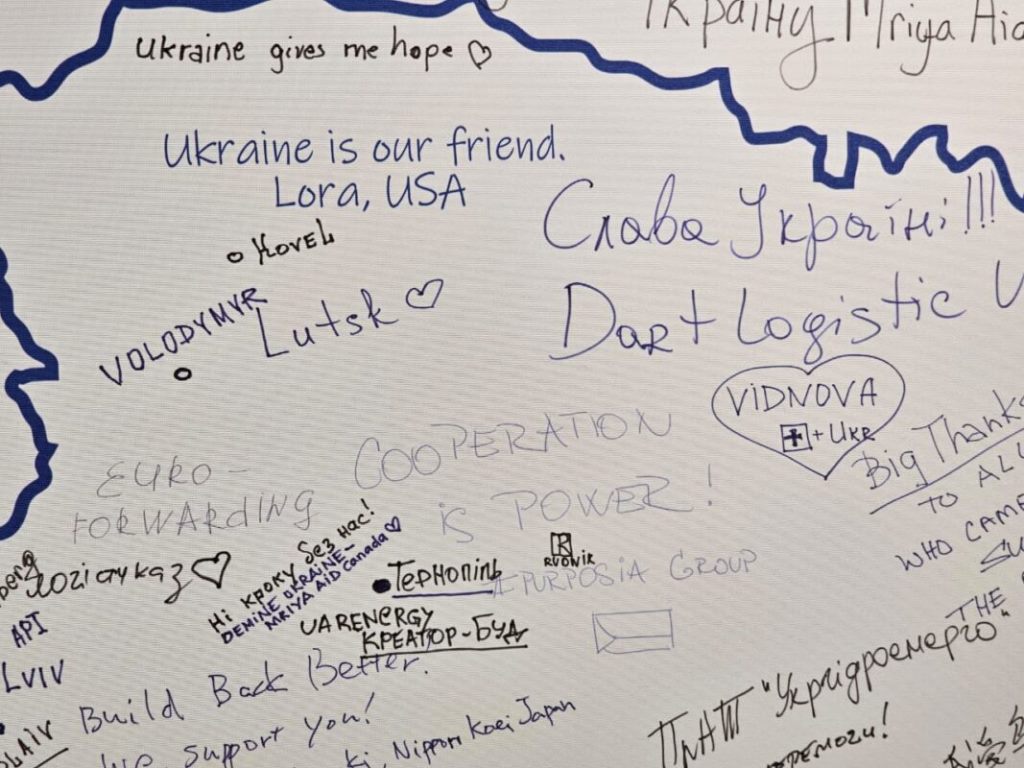 Україну Mriya Aid
Ukraine gives me hope ♡
Ukraine is our friend.
Lora, USA
Слава Україні!!!
Kovel
VOLODYMYR
Lutsk ♡
Dart Logistic
VIDNOVA
+ UKR
Big Thanks
TO ALL
WHO CAME
COOPERATION
is POWER!
EURO-
FORWARDING
Ні кроку без нас!
DEMINE UKRAINE-
MRIYA AID Canada ♡
RVOWIR
Тернопіль
#PURPOSIA GROUP
UARENERGY
КРЕАТОР-БУД
API
LVIV
THE
Build Back Better.
We support you!
Nippon Koei Japan
"Укргідроенерго"